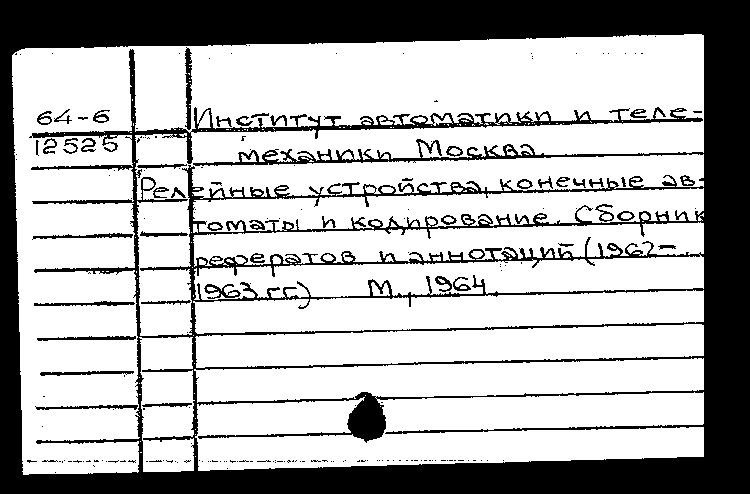 64-6
12525
Институт автоматики и теле-
механики Москва.
Релейные устройства, конечные ав-
томаты и кодирование. Сборник
рефератов и аннотаций (1962-
1963 гг.) М., 1964.